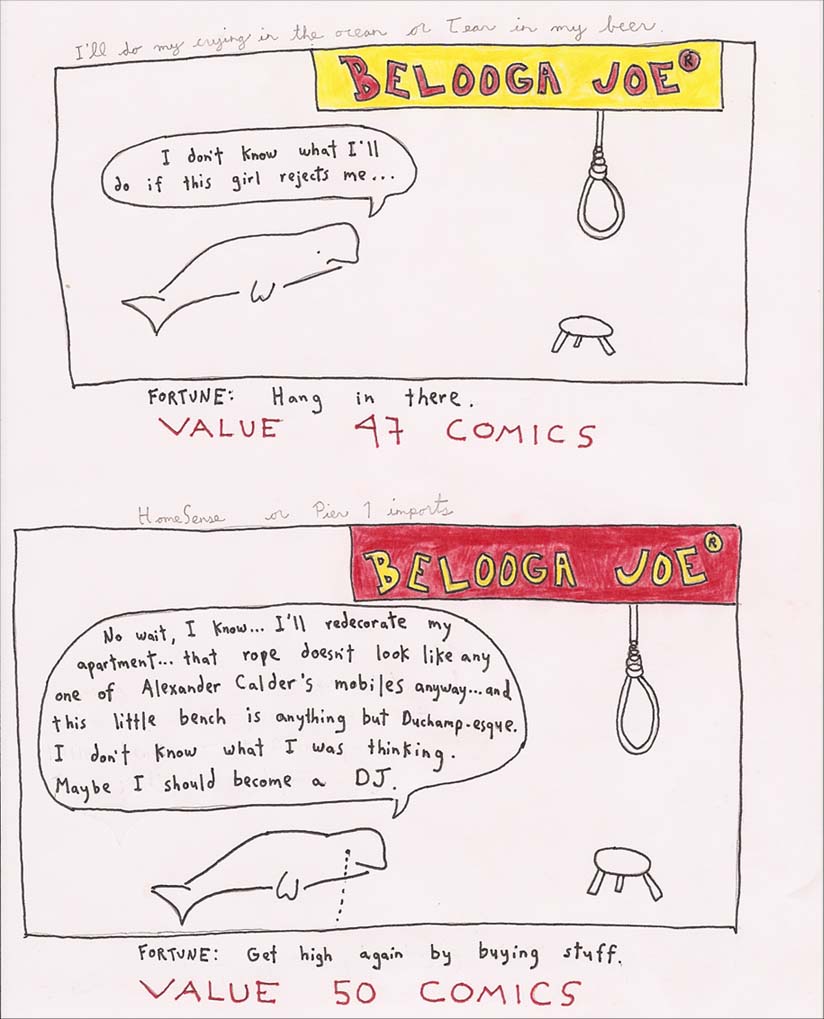 I'll do my crying in the ocean or Tear in my beer.
BELOOGA JOE®
I don't know what I'll
do if this girl rejects me...
FORTUNE: Hang in there.
VALUE 47 COMICS
HomeSense or Pier 1 imports
BELOOGA JOE®
No wait, I know... I'll redecorate my
apartment... that rope doesn't look like any
one of Alexander Calder's mobiles anyway...and
this little bench is anything but Duchamp-esque.
I don't know what I was thinking.
Maybe I should become a DJ.
FORTUNE: Get high again by buying stuff.
VALUE 50 COMICS